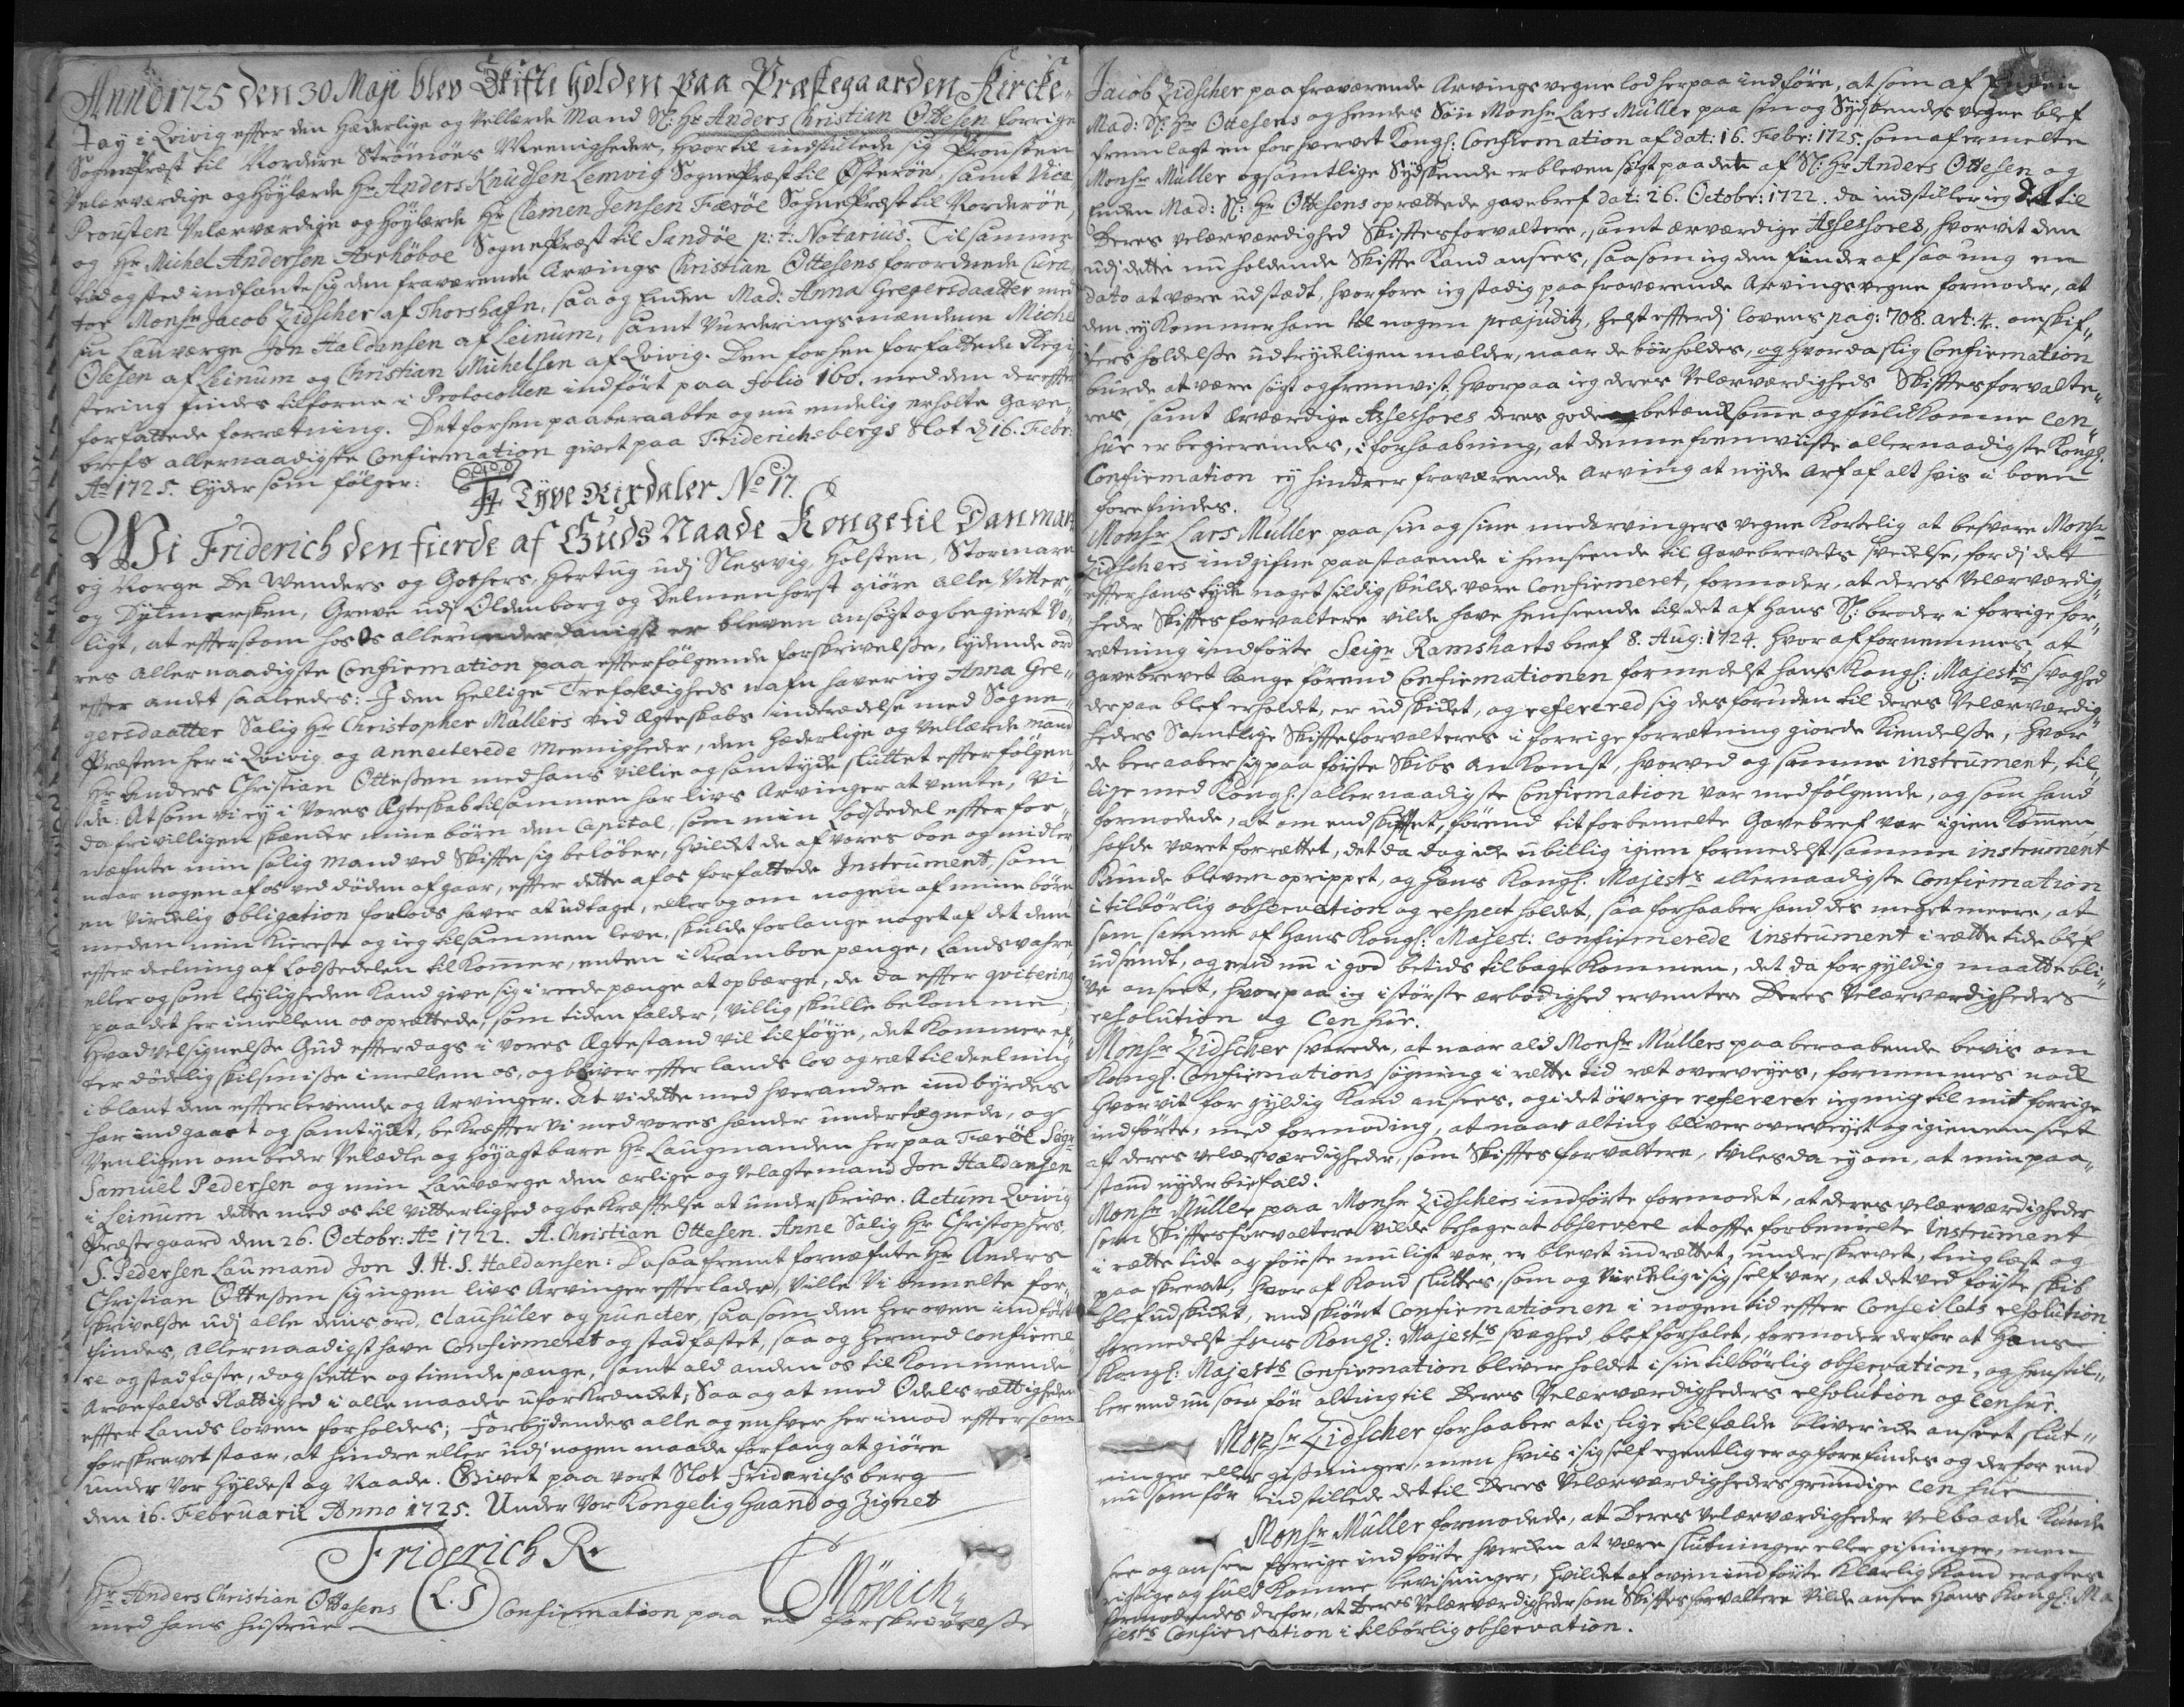 Anno 1725 den 30 Maji blev Skifte holden paa Præstegaarden Kircke-
Jay i Qvivig effter den Hæderlige og Vellærde Mand Sl: Hr Anders Christian Ottesen forrige
SognePræst til Nordere Strömöes Meenigheder, hvortil indstillede sig Prousten
Velærværdige og Höylærde Hr Anders Knudsen Lemvig SognePræst til Österöe, samt Vice
Prousten Velærværdige og Höylærde Hr Clemen Jensen Færöe SognePræst til Norderöe,
og Hr Michel Andersen Arrhöboe SognePræst til Sandöe p:t: Notarius. Til samme
tid og sted indfante sig den fraværende Arvings Christian Ottesens forordnede Cura-
tor Monsr Jacob Zidscher af Thorshafn, saa og Enken Mad: Anna Gregersdaatter med
sin Lauværge Jon Haldansen af Leinum, samt Vurderingsmændene Michel
Olesen af Leinum og Christian Michelsen af Qvivig. Den forhen forfattede Regi-
stering findes tilforne i Protocollen indfört paa folio 160. med den dereffter
forfattede forretning. Det forhen paaberaabte og nu endelig erholte Gave
brefs allernaadigste Confirmation givet paa Friderichsbergs Slot d 16. Febr:
Ao 1725. lyder som fölger:
Tyve Rixdaler No 17.
Wi Friderich den fierde af Guds Naade Konge til Danmark
og Norge De Wenders og Gothers, Hertug udj Slesvig, Holsten, Stormarn
og Dytmersken, Greve udj Oldenborg og Delmenhorst giöre alle Vitter-
ligt, at efftersom hos Os allerunderdanigst er bleven ansögt og begiert Vo-
res allernaadigste Confirmation paa effterfölgende forskrivelse, lydende ord
effter andet saaledes: I den Hellige Trefoldigheds nafn haver ieg Anna Gre-
gersdaatter Salig Hr Christopher Müllers ved Ægteskabs indtrædelse med Sogne-
Præsten her i Qvivig og annecterede Meenigheder, den Hæderlige og Vellærde mand
Hr Anders Christian Ottessen med hans villie og samtycke sluttet effterfölgen-
de: At som vi ey i Vores Ægteskab tilsammen har livs Arvinger at vente, Vi
da frivilligen skænker mine börn den Capital, som min Lodssedel effter for-
næfnte min salig Mand ved Skifte sig belöber, hvilket de af Vores boe og midler
naar nogen af os ved döden afgaar, effter dette af os forfattede Instrument, som
en Virckelig obligation forlods haver at udtage, eller og om nogen af mine börn
meden min Kiereste og ieg tilsammen leve, skulde forlange noget af det dem
effter deelning af Lodssedelen tilkommer, enten i Kramboe penge, Landsvahre
eller og som leyligheden kand give sig i reede penge at opbærge, de da effter qvitering
paa det her imellem os oprettede, som tiden falder, villig skulle bekomme;
Hvad velsignelse Gud effterdags i vores Ægtestand vil tilföye, det kommer ef-
ter dödelig skilsmisse imellem os, og bliver effter lands lov og ret til deelning
iblant den effterlevende og Arvinger. At vi dette med hverandre indbyrdes
har indgaaet og samtyckt, bekræffter Vi med vores hænder undertegnede, og
Venligen ombeder Velædle og höyagtbare Hr Laugmanden her paa Færöe Seigr
Samuel Pedersen og min Lauværge den ærlige og velagte mand Jon Haldansen
i Leinum dette med os til Vitterlighed og bekræfftelse at underskrive. Actum Qvivig
Præstegaard den 26. Octobr: Ao 1722. A. Christian Ottesen. Anne Salig Hr Christophers.
S. Pedersen Laumand Jon J. H. S. Haldansen: Da saafremt fornæfnte Hr Anders
Christian Ottessen sig ingen livs Arvinger effterlader, Ville Vi bemelte for-
skrivelse udj alle dens ord, clausuler og puncter, saasom den heroven indfört
findes, Allernaadigst have Confirmeret og stadfæstet, saa og hermed confirme-
re og stadfæste, dog siette og tiende penge, samt ald anden os tilkommende
Arvefalds Rettighed i alle maader uforkrencket; Saa og at med Odels rettigheden
effter Lands loven forholdes; Forbydendes alle og enhver her imod efftersom
forskrevet staar, at hindre eller udj nogen maade forfang at giöre
under Vor Hyldest og Naade. Givet paa vort Slot Friderichsberg
den 16. Februarii Anno 1725. Under Vor Kongelig Haand og Zignet
Friderich R
Hr Anders Christian Ottesens (L.S) Confirmation paa en Forskrivelse
med hans hustrue
Mönich
Jacob Zidscher paa fraværende Arvings vegne lod herpaa indföre, at som af Enken
Mad: Sl: Hr Ottesens og hendes Sön Monsr Lars Müller paa sin og Sydskendes vegne blef
fremlagt en forhvervet Kongl: Confirmation af dat: 16. Febr: 1725. som af ermelte
Monsr Müller og samtlige Sydskende er bleven sögt paa dett af Sl: Hr Anders Ottesen og
Enken Mad: Sl: Hr Ottesens oprettede gavebref dat: 26. Octobr: 1722. da indstiller ieg det til
Deres velærværdighed Skifftesforvaltere, samt ærværdige Assessores, hvorvit den
udj dette nu holdende Skiffte kand ansees, saasom ieg den finder af saa ung en
dato at være udstædt, hvorfore ieg stadig paa fraværende Arvings vegne formoder, at
den ey kommer ham til nogen præjuditz, helst effterdj lovens pag: 708. art: 4. om skif-
ters holdelse udtrydeligen melder, naar de bör holdes, og hvorda slig Confirmation
burde at være sögt og fremvist, hvorpaa ieg deres Velærværdigheds Skifftesforvalte-
res, samt ærværdige Assessores deres gode betencksomme og fuldkomne cen-
sur er begierendes, i forhaabning, at denne fremviiste allernaadigste Kongl:
Confirmation ey hindrer fraværende Arving at nyde Arf af alt hvis i boen
forefindes.
Monsr Lars Müller paa sin og sine medarvingers vegne kortelig at besvare Monsr
Zidschers indgifne paastaaende i henseende til Gavebrevets svedelse, fordj det
effter hans tycke noget sildig skulde være Confirmeret, formoder, at deres Velærværdig-
heder Skifftesforvaltere vilde have henseende til det af hans Sl: broder i forrige for-
retning indförte Seigr Ramsharts bref 8. Aug: 1724. hvoraf fornemmes, at
gavebrevet længe förend Confirmationen formedelst hans Kongl: Majests svaghed
derpaa blef erholdet, er udskicket, og refererer sig desforuden til deres Velærværdig-
heders Samtlige Skifftesforvalteres i forrige forretning giorde Kiendelse, hvor
de beraaber sig paa förste Skibs ankomst, hvorved og samme instrument, til-
lige med Kongl: allernaadigste Confirmation var medfölgende, og som hand
formodede, at om endskifftet, förend titforbemelte Gavebref var igien kommen
hafde været forrettet, det da dog icke ubillig igien formedelst samme instrument
kunde bleven oprippet, og hans Kongl. Majests allernaadigste Confirmation
i tilbörlig observation og respect holdet, saa forhaaber hand des meget meere, at
som samme af hans Kongl: Majest: confirmerede instrument i rette tide blef
udsendt, og end nu i god betids tilbage kommen, det da for gyldig maatte bli-
ve anseet, hvorpaa ieg i störste ærbödighed erventer Deres Velærværdigheders
resolution og Censur.
Monsr Zidscher svarede, at naar ald Monsr Müllers paaberaabende bevis om
Kongl: Confirmations sögning i rette tid ret overveyes, fornemmes nock
hvorvit for gyldig kand ansees, og i det övrige refererer ieg mig til mit forrige
indförte, med formoding, at naar alting bliver overveyet og igiennemseet
af deres velærværdigheder, som Skifftesforvaltere, tvilesda ey om, at min paa-
stand nyder biefald.
Monsr Müller paa Monsr Zidschers indförte formodet, at deres velærværdigheder
som Skifftesforvaltere vilde behage at observere at offte forbemelte Instrument
i rette tide og förste muligt var, er blevet indrettet, underskrevet, tinglæst og
paaskrevet, hvoraf kand sluttes, som og Virckelig i sig self var, at det ved förste skib
blef udskicket, endskiönt Confirmationen i nogen tid effter Conseilets resolution
formedelst hans Kongl: Majests svaghed blef forhalet, formoder derfor at Hans
Kongl: Majests Confirmation bliver holdet i sin tilbörlig observation, og henstil-
ler end nu som för alting til Deres Velærværdigheders resolution og Censur.
Monsr Zidscher forhaaber at i slige tilfælde bliver icke anseet slut-
ninger eller gissninger, men hvis i sig self egentlig er og forefindes og derfor end
nu som för indstillede det til Deres Velærværdigheders grundige censur
Monsr Müller formodede, at Deres velærværdigheder velbaade kunde
see og ansee forrige indförte hverken at være slutninger eller gisninger, men
rigtige og fuldkomne bevisninger, hvilket af ovenindförte klarlig kand eragtes
formodendes derfor, at Deres velærværdigheder som Skifftesforvaltere Vilde ansee Hans Kongl: Ma
jests Confirmation i tilbörlig observation.